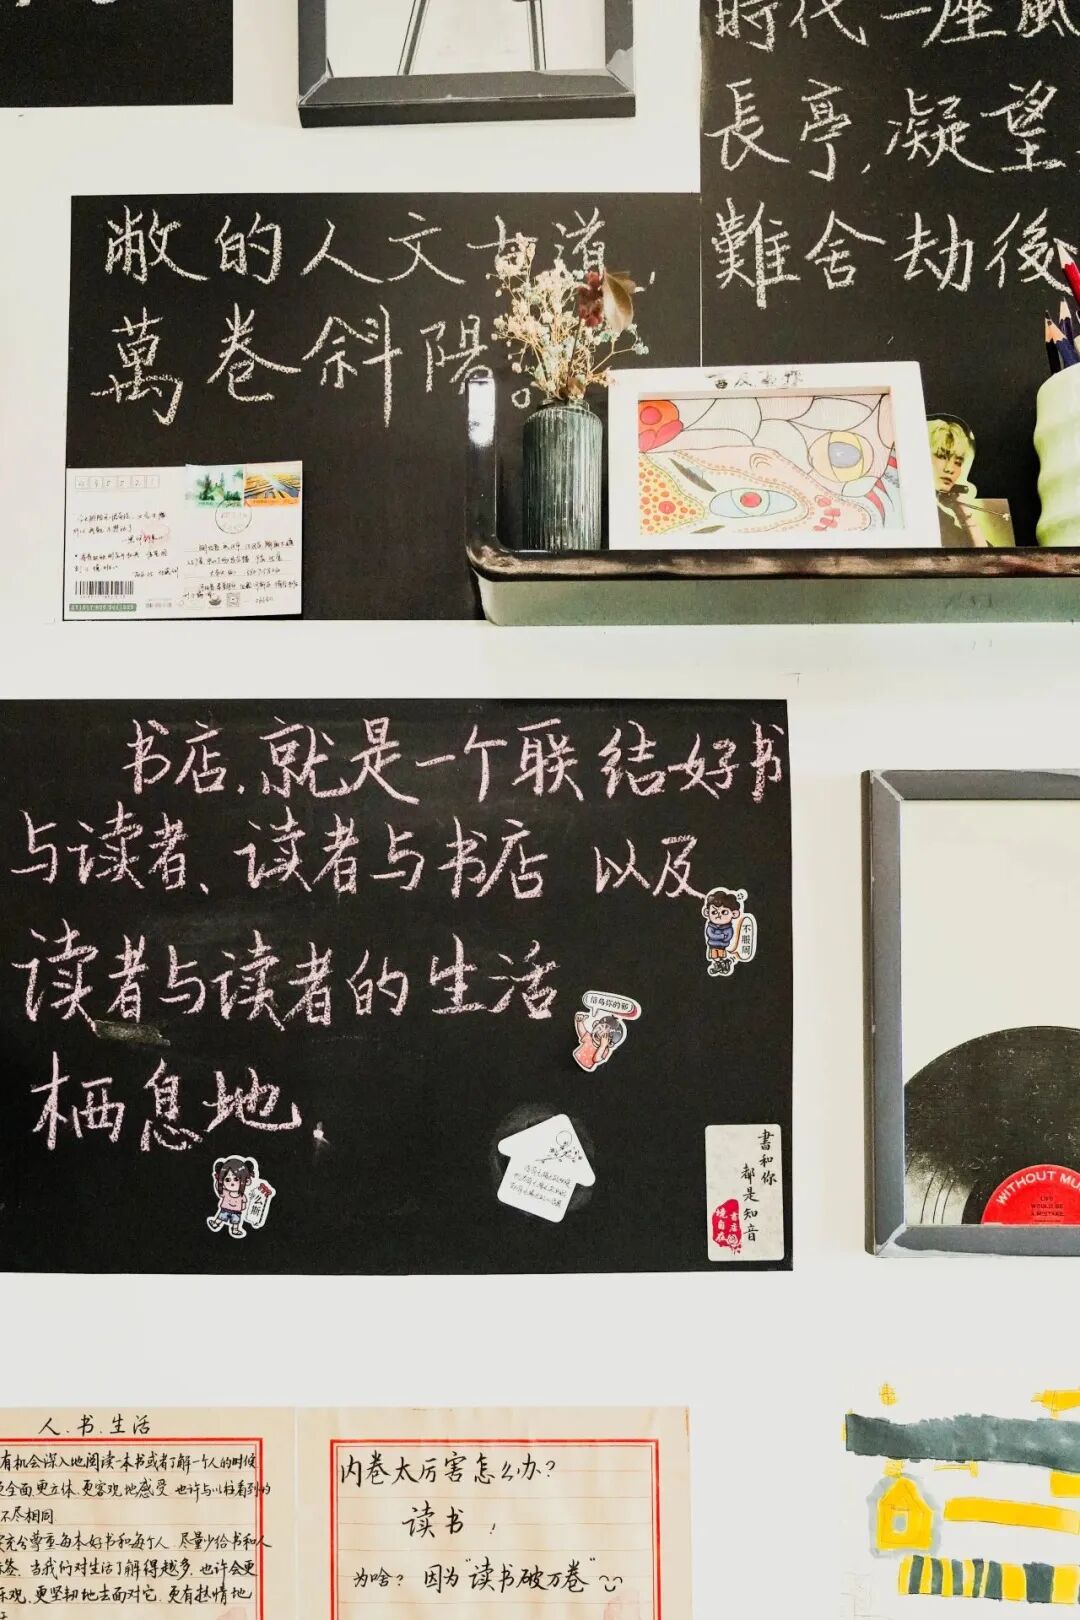 時代一座風
長亭,凝望
難舍劫後
敝的人文古道,
萬卷斜陽。
书店,就是一个联结好书
与读者、读者与书店 以及
读者与读者的生活
栖息地.
不服周
信鸟你的邪
么斯
書和你
都是知音
WITHOUT MU
LIFE
WOULD BE
A MISTAKE
人.书.生活
有机会深入地阅读一本书或者了解一个人的时候
更全面.更立体.更客观地感受.也许与以往看到的
不尽相同.
充分尊重每本好书和每个人.尽量少给书和人
标签.当我们对生活了解得越多.也许会更
乐观.更坚韧地去面对它.更有热情地
内卷太厉害怎么办?
读书!
为啥? 因为"读书破万卷"